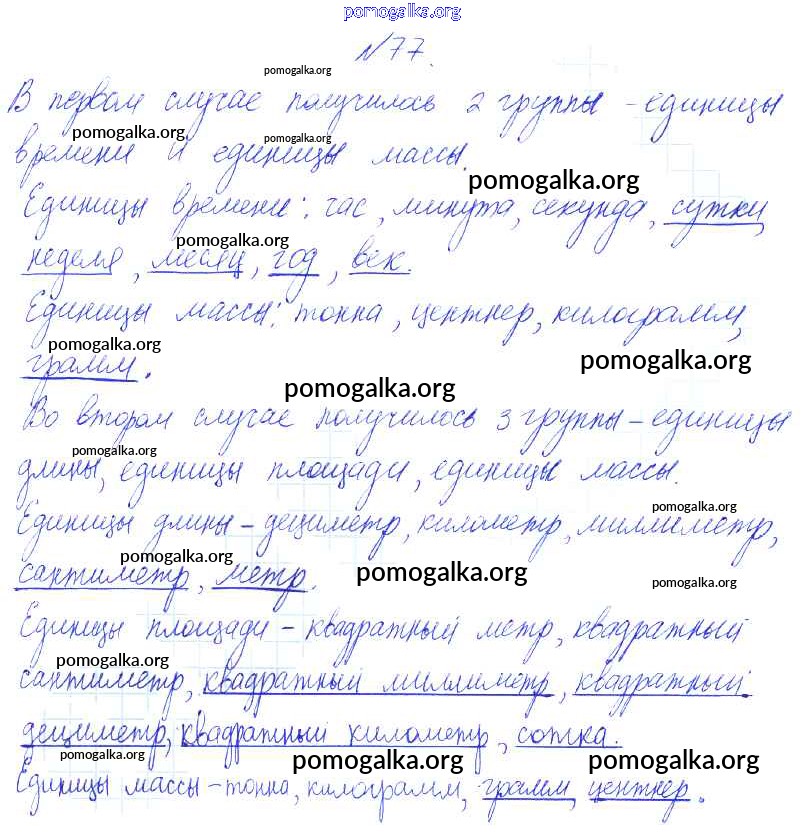 pomogalka.org
№77.
pomogalka.org
В первом случае получилось 2 группы – единицы
pomogalka.org pomogalka.org
времени и единицы массы.
pomogalka.org
Единицы времени: час, минута, секунда, сутки,
pomogalka.org
неделя, месяц, год, век.
Единицы массы: тонна, центнер, килограмм,
pomogalka.org pomogalka.org
грамм.
pomogalka.org
Во втором случае получилось 3 группы – единицы
pomogalka.org
длины, единицы площади, единицы массы.
pomogalka.org
Единицы длины – дециметр, километр, миллиметр,
pomogalka.org pomogalka.org pomogalka.org
сантиметр, метр.
Единицы площади – квадратный метр, квадратный
pomogalka.org
сантиметр, квадратный миллиметр, квадратный
дециметр, квадратный километр, сотка.
pomogalka.org pomogalka.org pomogalka.org
Единицы массы – тонна, килограмм, грамм, центнер.